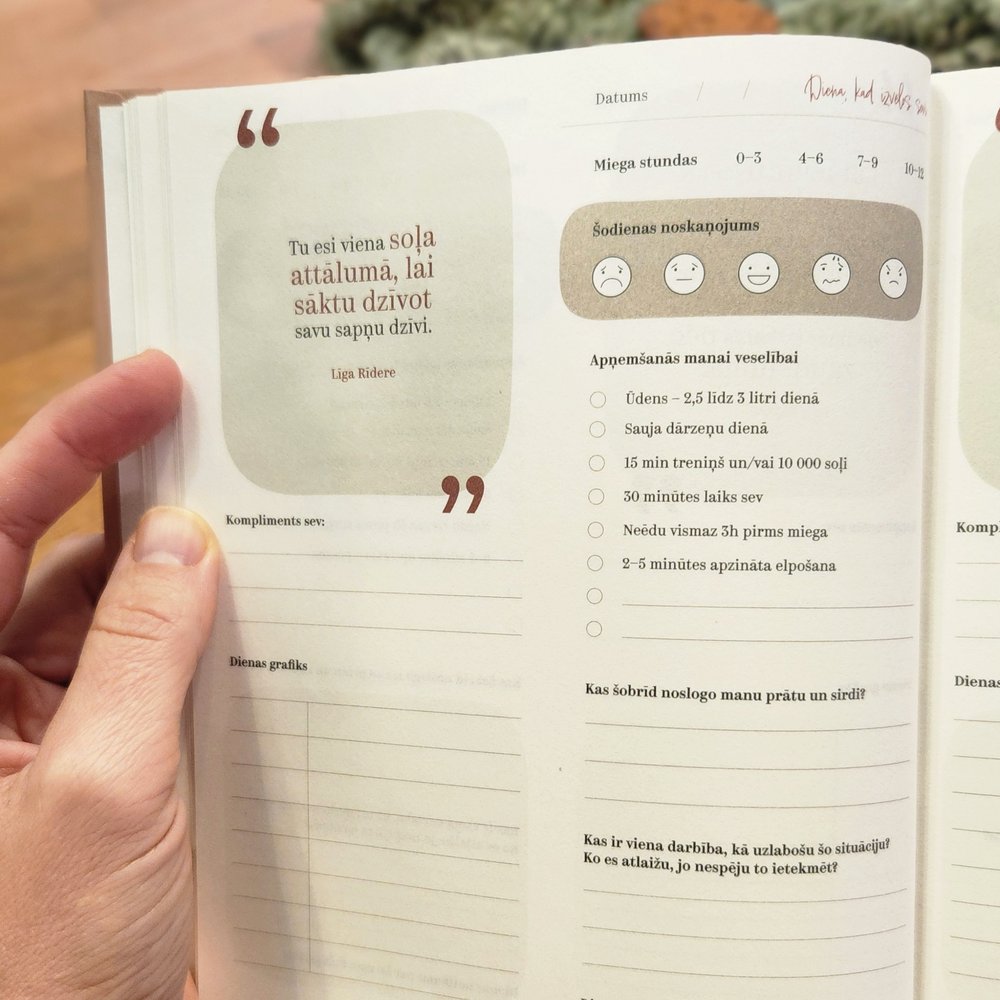 “
Tu esi viena soļa
attālumā, lai
sāktu dzīvot
savu sapņu dzīvi.
Līga Rīdere
”
Kompliments sev:
Dienas grafiks
Datums / /
Diena, kad izvēlos
Miega stundas 0–3 4–6 7–9 10–12
Šodienas noskaņojums
Apņemšanās manai veselībai
Ūdens – 2,5 līdz 3 litri dienā
Sauja dārzeņu dienā
15 min treniņš un/vai 10 000 soļi
30 minūtes laiks sev
Neēdu vismaz 3h pirms miega
2–5 minūtes apzināta elpošana
Kas šobrīd noslogo manu prātu un sirdi?
Kas ir viena darbība, kā uzlabošu šo situāciju?
Ko es atlaižu, jo nespēju to ietekmēt?
Dienas